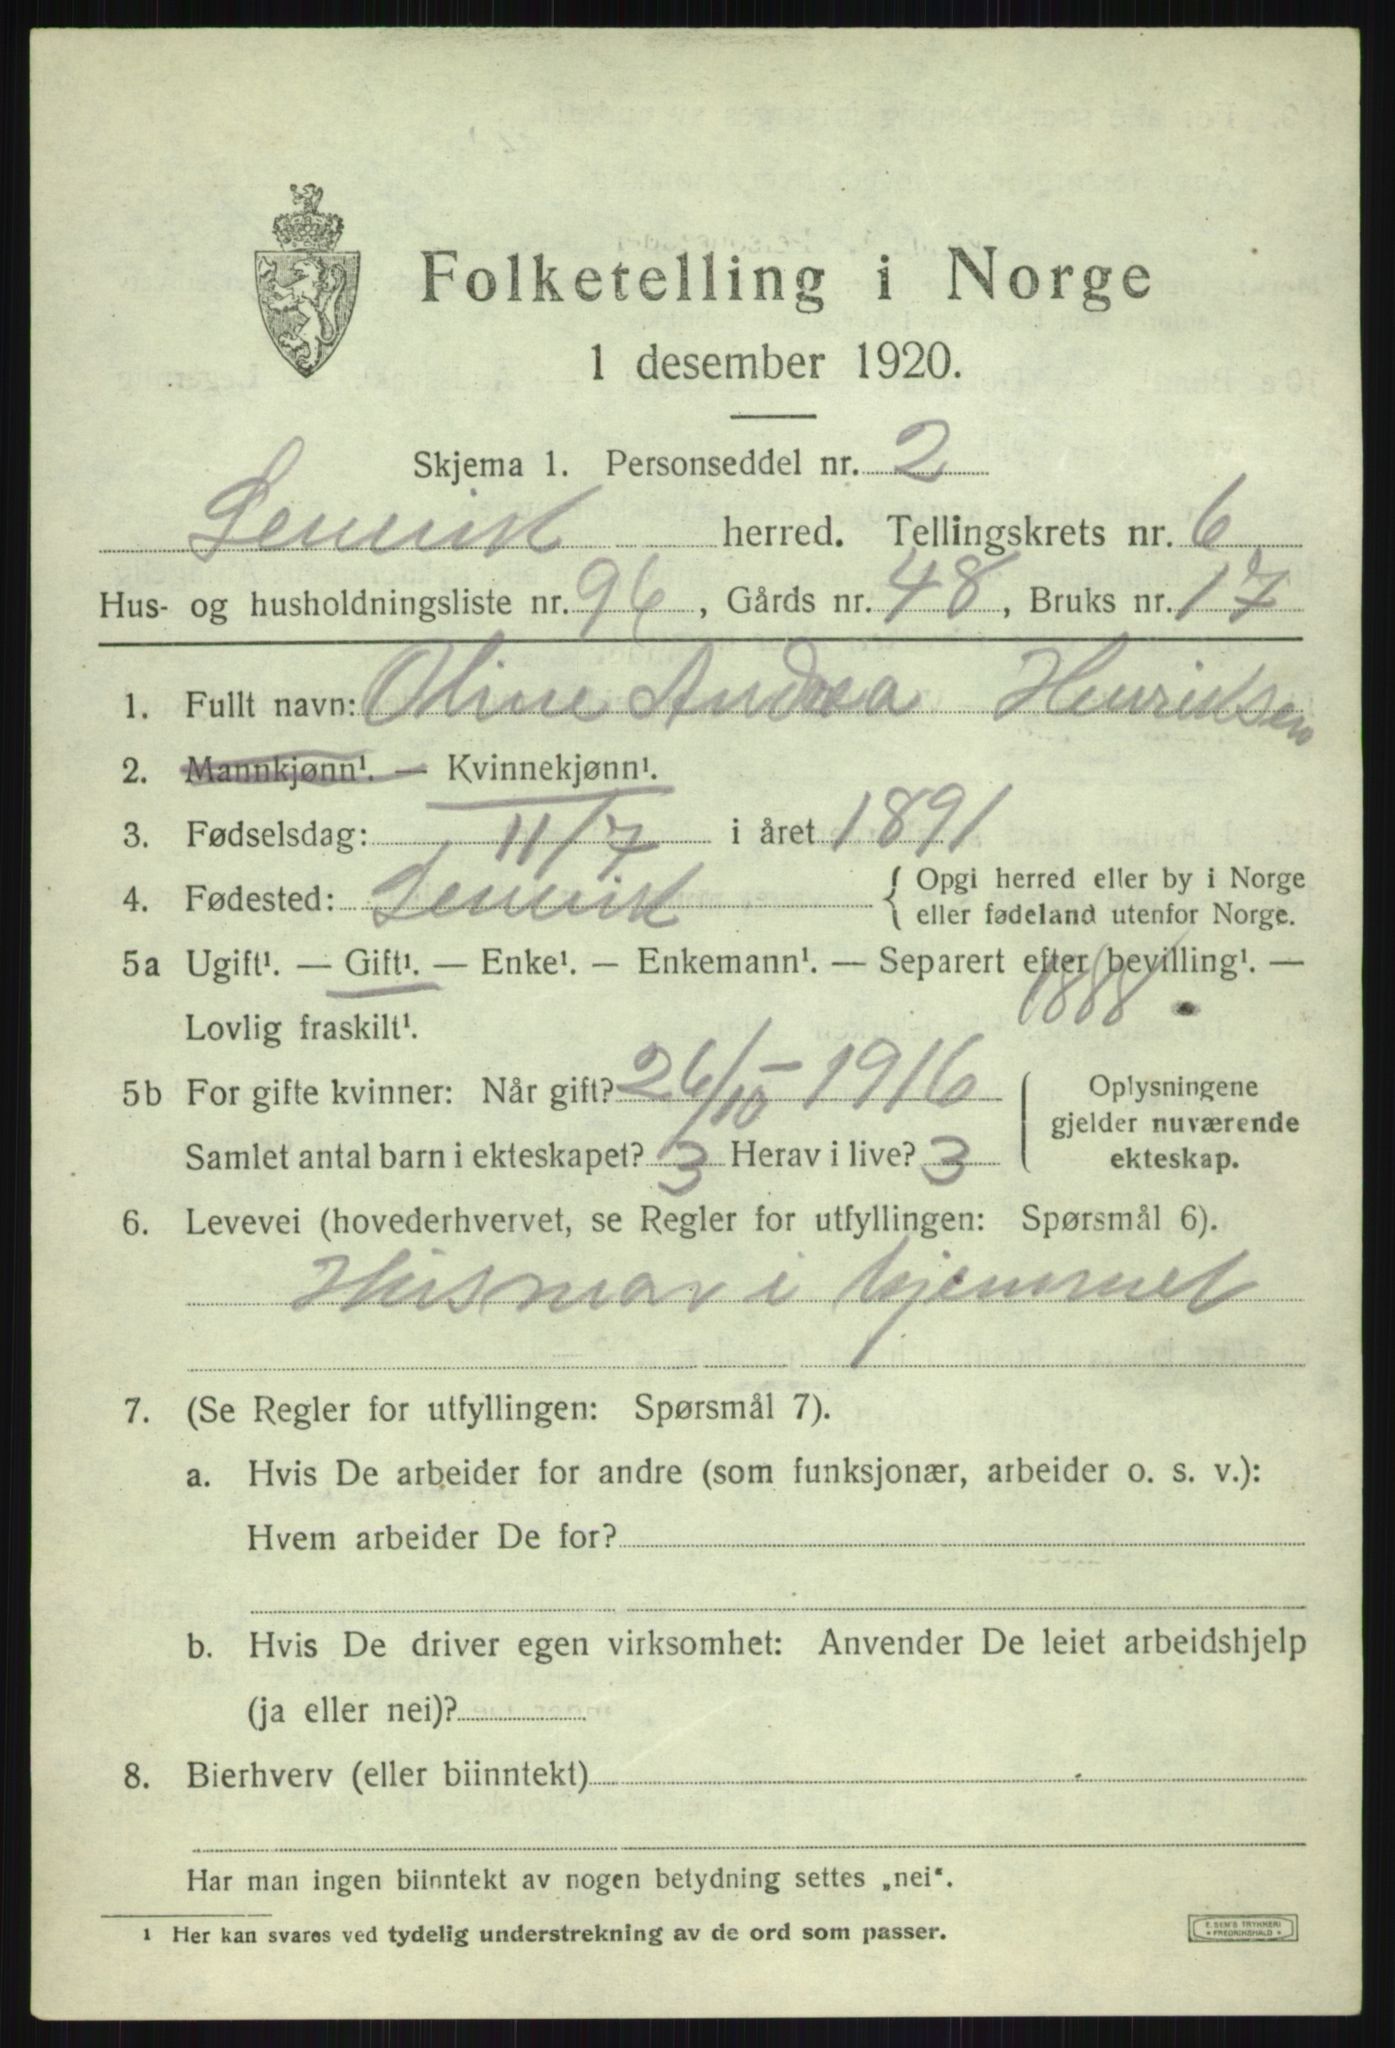 Folketelling i Norge
1 desember 1920.
Skjema 1. Personseddel nr. 2
Lenvik herred. Tellingskrets nr. 6
Hus- og husholdningsliste nr. 96, Gårds nr. 48, Bruks nr. 17
1. Fullt navn: Oline Andrea Henriksen
2. Mannkjønn¹. — Kvinnekjønn¹.
3. Fødselsdag: 11/7 i året 1891
4. Fødested: Lenvik { Opgi herred eller by i Norge
eller fødeland utenfor Norge.
5a Ugift¹. — Gift¹. — Enke¹. — Enkemann¹. — Separert efter bevilling¹. —
Lovlig fraskilt¹. 1888
5b For gifte kvinner: Når gift? 26/10 - 1916 { Oplysningene
gjelder nuværende
Samlet antal barn i ekteskapet? 3 Herav i live? 3 ekteskap.
6. Levevei (hovederhvervet, se Regler for utfyllingen: Spørsmål 6).
Husmor i hjemmet
7. (Se Regler for utfyllingen: Spørsmål 7).
a. Hvis De arbeider for andre (som funksjonær, arbeider o. s. v.):
Hvem arbeider De for?
b. Hvis De driver egen virksomhet: Anvender De leiet arbeidshjelp
(ja eller nei)?
8. Bierhverv (eller biinntekt)
Har man ingen biinntekt av nogen betydning settes „nei“.
1 Her kan svares ved tydelig understrekning av de ord som passer.
E. SEM'S TRYKKERI
* FREDRIKSHALD *